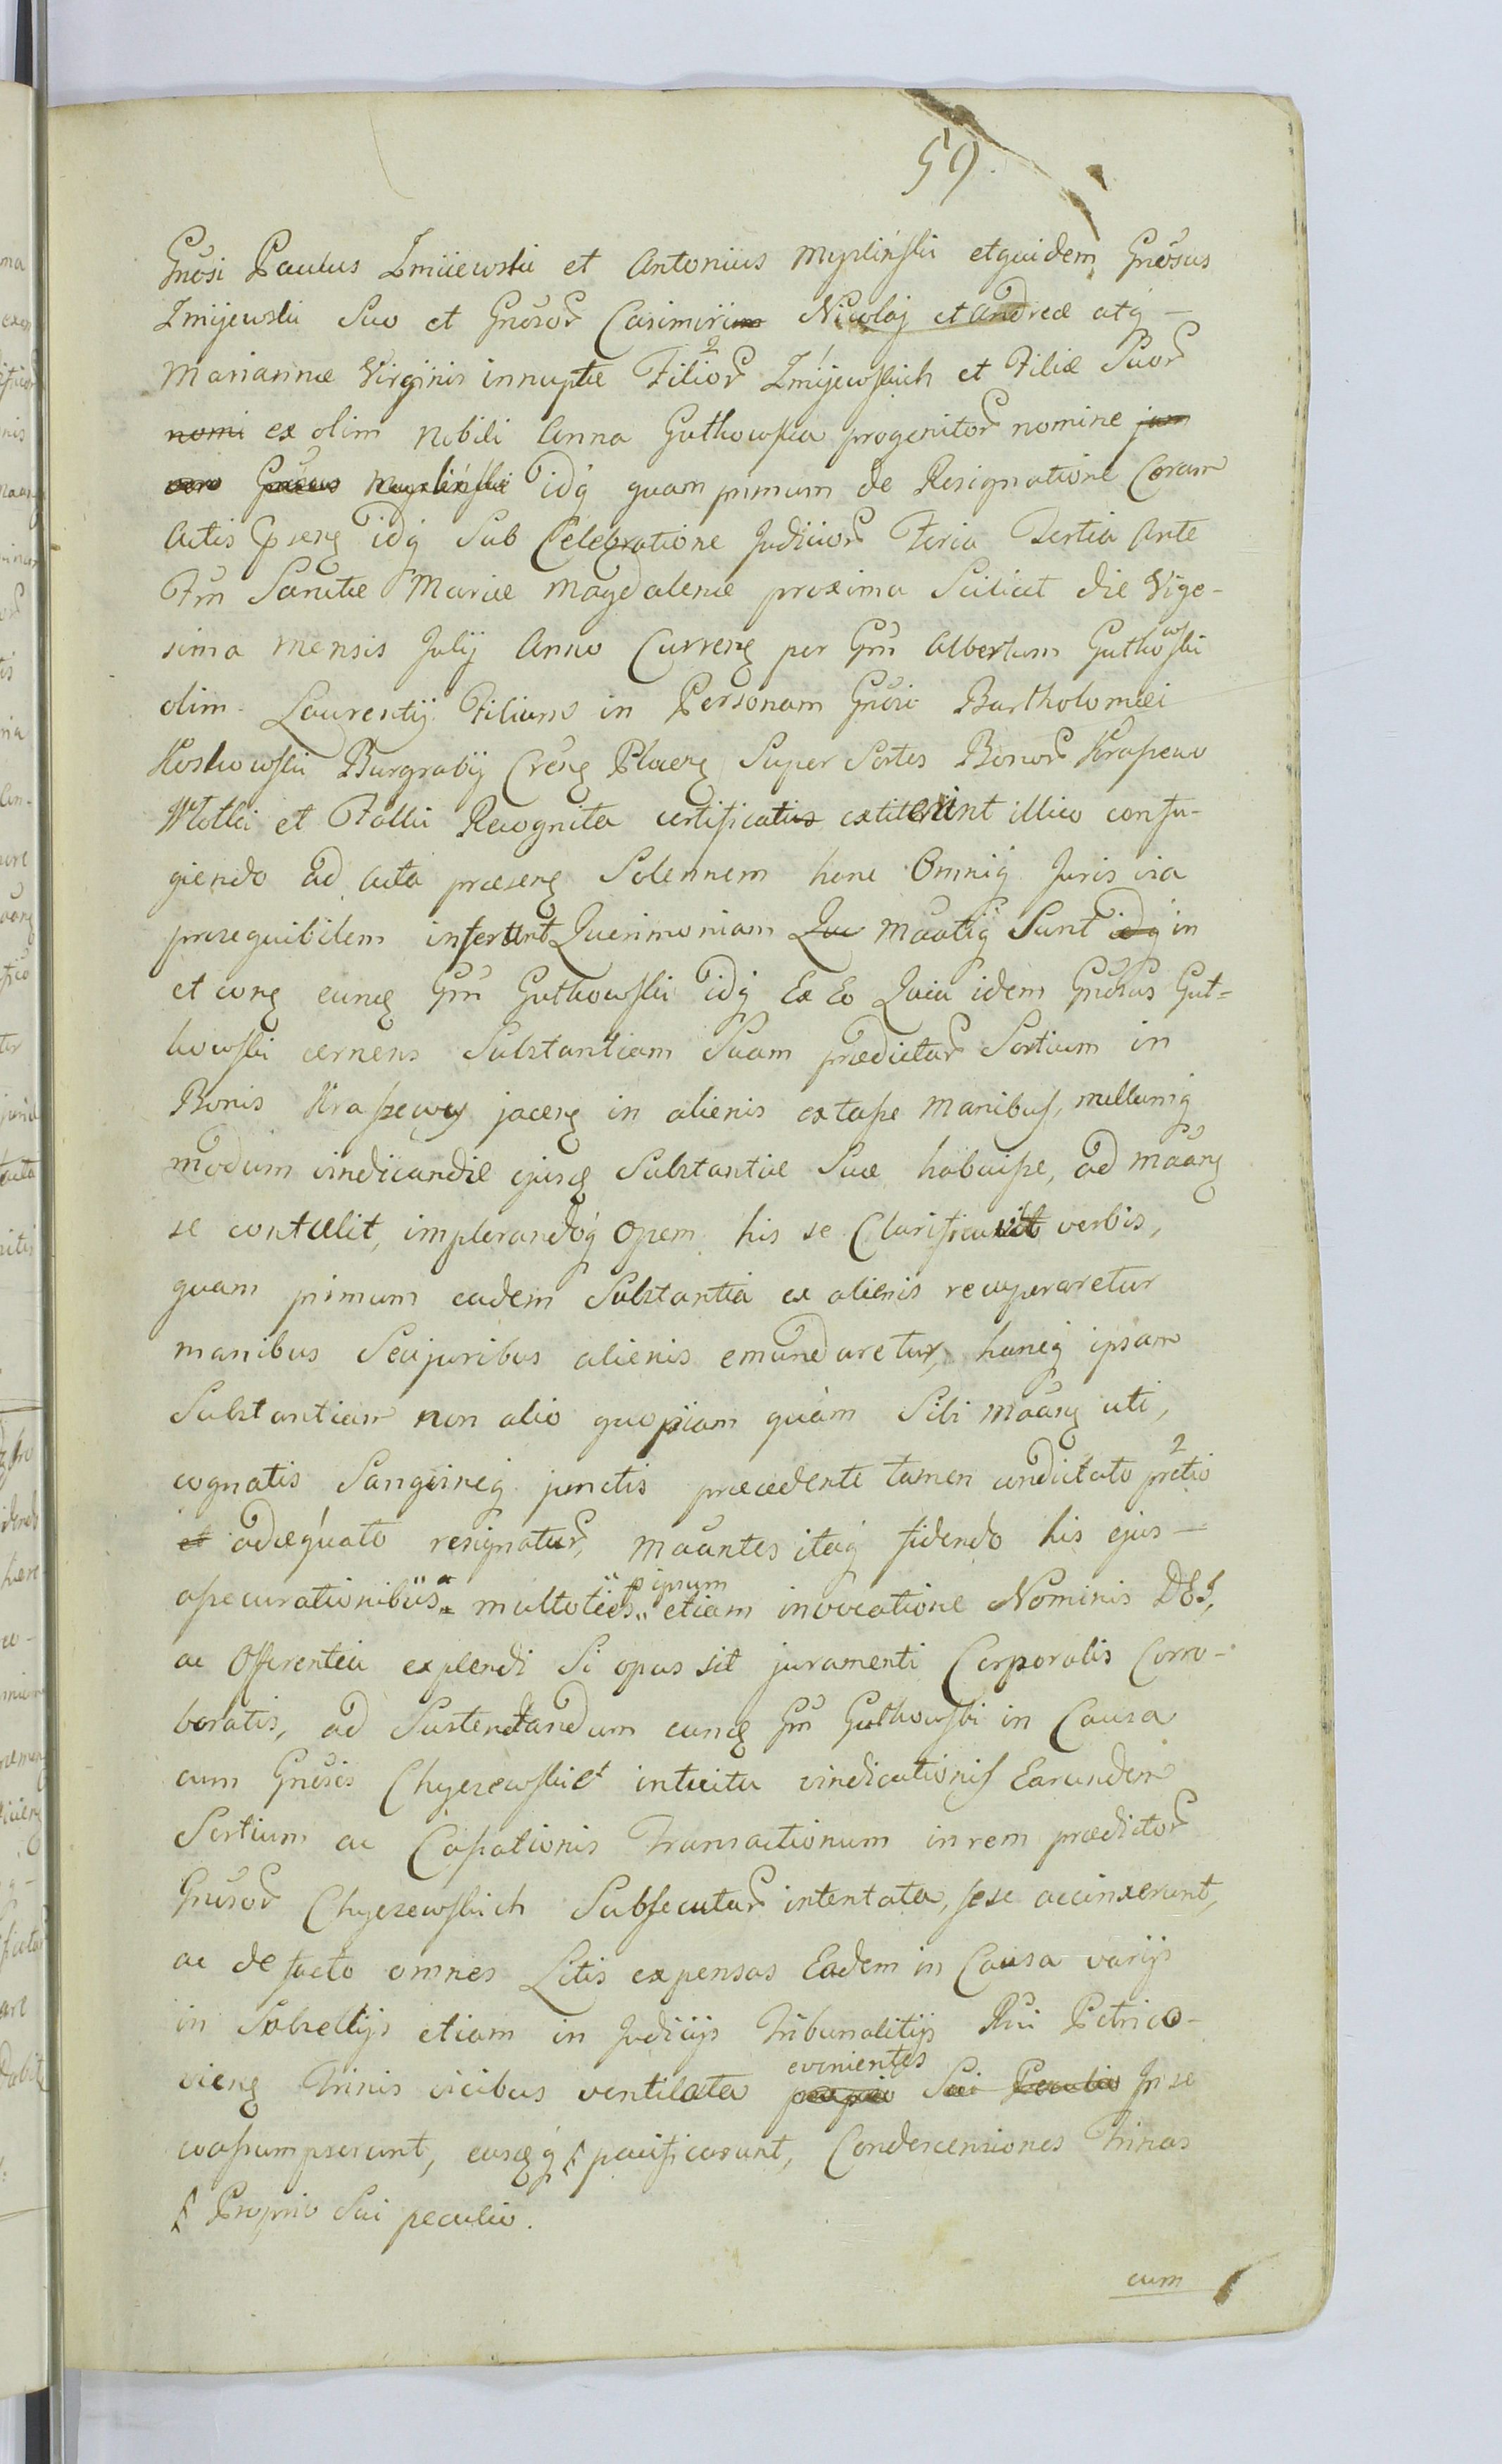 59.
Gnosi Paulus Zmiiewski et Antonius Myslinski et quidem Gnosus
Zmijewski Suo et Gnosor Casimiri Nicolaj et Andreæ atq —
Mariannæ Virginis innuptæ Filior Zmijewskich et Filiæ Suor
nomi ex olim Nobili Anna Gutkowska progenitor nomine jam
vero Gnosus Myslinski idq quam primum de Resignatione Coram
Actis pseng idq Sub Celebratione Judicior Feria Tertia Ante
Ftm Sanctæ Mariæ Magdalenæ proxima Scilicet die Vige-
sima Mensis Julij Anno Curreng per Gm Albertum Gutkowski
olim Laurentij Filium in Personam Gnosi Bartholomæi
Koskowski Burgrabij Creng Placeng Super Sortes Bonor Krapewo
Wtotki et Folki Recognita certificati extiterint illico confu-
giendo ad Acta præseng Solennem hanc Omniq Juris via
prosequibilem inferunt Querimoniam Quo Maatig Sunt idq in
et cong eunq Gm Gutkowski idq Ex Eo Quia idem Gnosus Gut=
kowski cernens Substantiam Suam prædictar Sortium in
Bonis Kraszewy jaceng in alienis extasse Manibus, nullumq
modum vindicandæ ejusq Substantiæ Suæ habuisse, ad Maang
se contulit, implorandoq opem his se Clarificavit verbis,
quam primum eadem Substantia ex alienis recuperaretur
manibus Seu juribus alienis emundaretur, hancq ipsam
Substantiam non alio quopiam quàm Sibi Maang uti,
cognatis Sangvineq junctis præcedente tamen condictato pretio
et adæquato resignatur, Maantes itaq fidendo his ejus —
assecurationibus multoties ipsum etiam invocatione Nominis DEI,
ac Offerentia explendi Si opus sit juramenti Corporalis Corro-
boratis, ad Sustentandum eunq Gm Gutkowski in Causa
cum Gnosis Chyczewskie intuitu vindicationis Earundem
Sortium ac Cassationis Transactionum in rem prædictor
Gnosor Chyczewskich Subsecutar intentata, sese accinxerunt,
ac de facto omnes Litis expensas Eadem in Causa varijs
in Subsellijs etiam in Judicijs Tribunalitijs Rni Petrico-
vieng Trinis vicibus ventilata evenientes proprio Sui Peculio In se
coassumpserunt, easq q pacificarunt, Condescensiones Trinas
Proprio Sui peculio.
cum